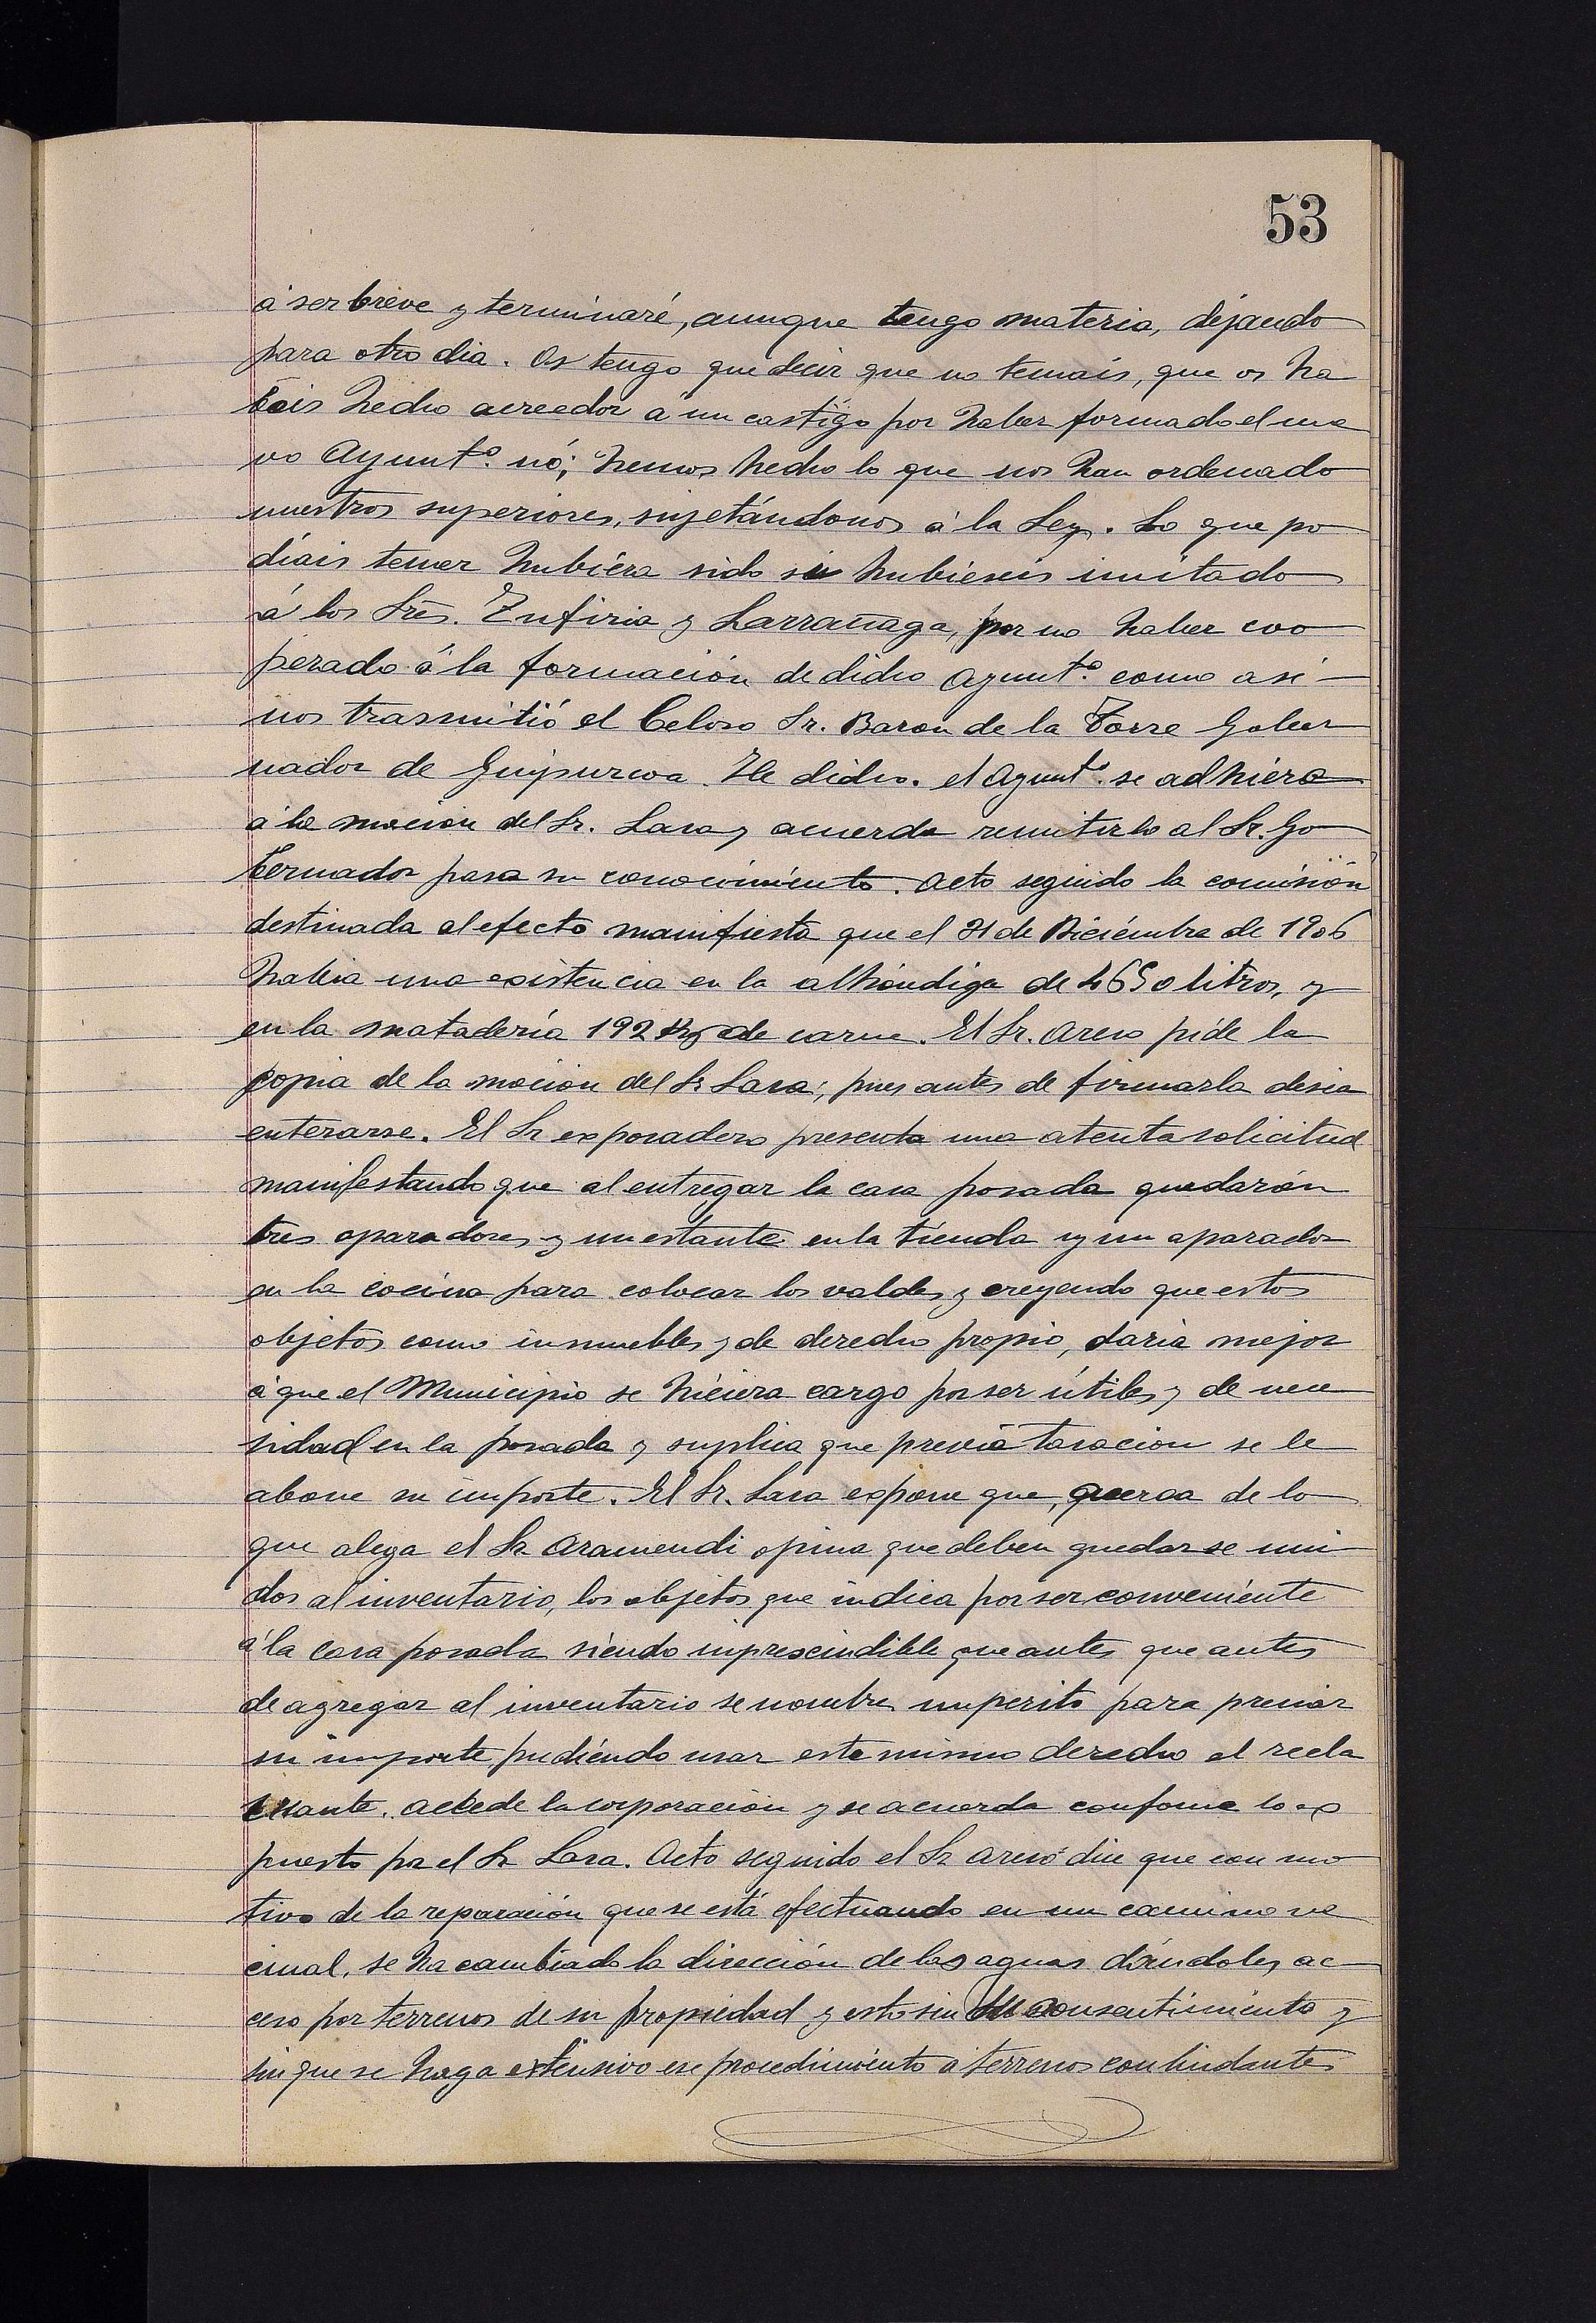 53
á ser breve y terminaré, aunque tengo materia, dejando
para otro dia. Os tengo que decir que no temais, que os ha
beis hecho acreedor á un castigo por haber formado el nue
vo Ayuntº. nó; hemos hecho lo que nos han ordenado
nuestros superiores, sujetándonos á la Ley. Lo que po
díais temer hubiéra sido si hubieseis imitado
á los Sres. Zufiria y Larrañaga, por no haber coo
perado á la formación de dicho Ayuntº. como asi
nos trasmitió el Celoso Sr. Baron de la Torre Gober
nador de Guipuzcoa. He dicho. el Ayuntº. se adhiere
á la moción del Sr. Lasa y acuerda remitirlo al Sr. Go
bernador para su conocimiento. Acto seguido la comisión
destinada al efecto manifiesta que el 31 de Diciémbre de 1906
habia una existencia en la alhóndiga de 4650 litros, y
en la matadería 192 Kg de carne. El Sr. Areso pide la
copia de la moción del Sr Lasa; pues antes de firmarla desea
enterarse. El Sr exposadero presenta una atenta solicitud
manifestando que al entregar la casa posada quedarón
tres aparadores y un estante en la tienda y un aparador
en la cocina para colocar los valdes y creyendo que estos
objetos como inmuebles y de derecho propio, daria mejor
á que el Municipio se hiciera cargo por ser útiles y de nece
sidad en la posada y suplica que previa tasacion se le
abone su importe. El Sr. Lasa expone que, acerca de lo
que alega el Sr Aramendi opina que deben quedarse uni
dos al inventario, los objetos que indica por ser conveniente
á la casa posada siendo imprescindible que antes que antes
de agregar al inventario se nombre un perito para preciar
su importe pudiéndo usar este mismo derecho el recla
mante. accede la corporación y se acuerda conforme lo ex
puesto por el Sr Lasa. Acto seguido el Sr Areso dice que con mo
tivo de la reparación que se está efectuando en un camino ve
cinal, se ha cambiado la dirección de las aguas dándoles ac
ceso por terrenos de su propiedad y esto sin su consentimiento y
sin que se haga extensivo ese procedimiento a terrenos conlindantes